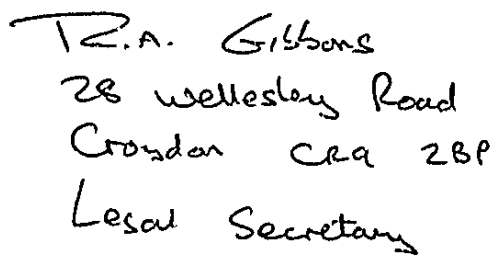 R.A. Gibbons
28 Wellesley Road
Croydon CR9 2BP
Legal Secretary